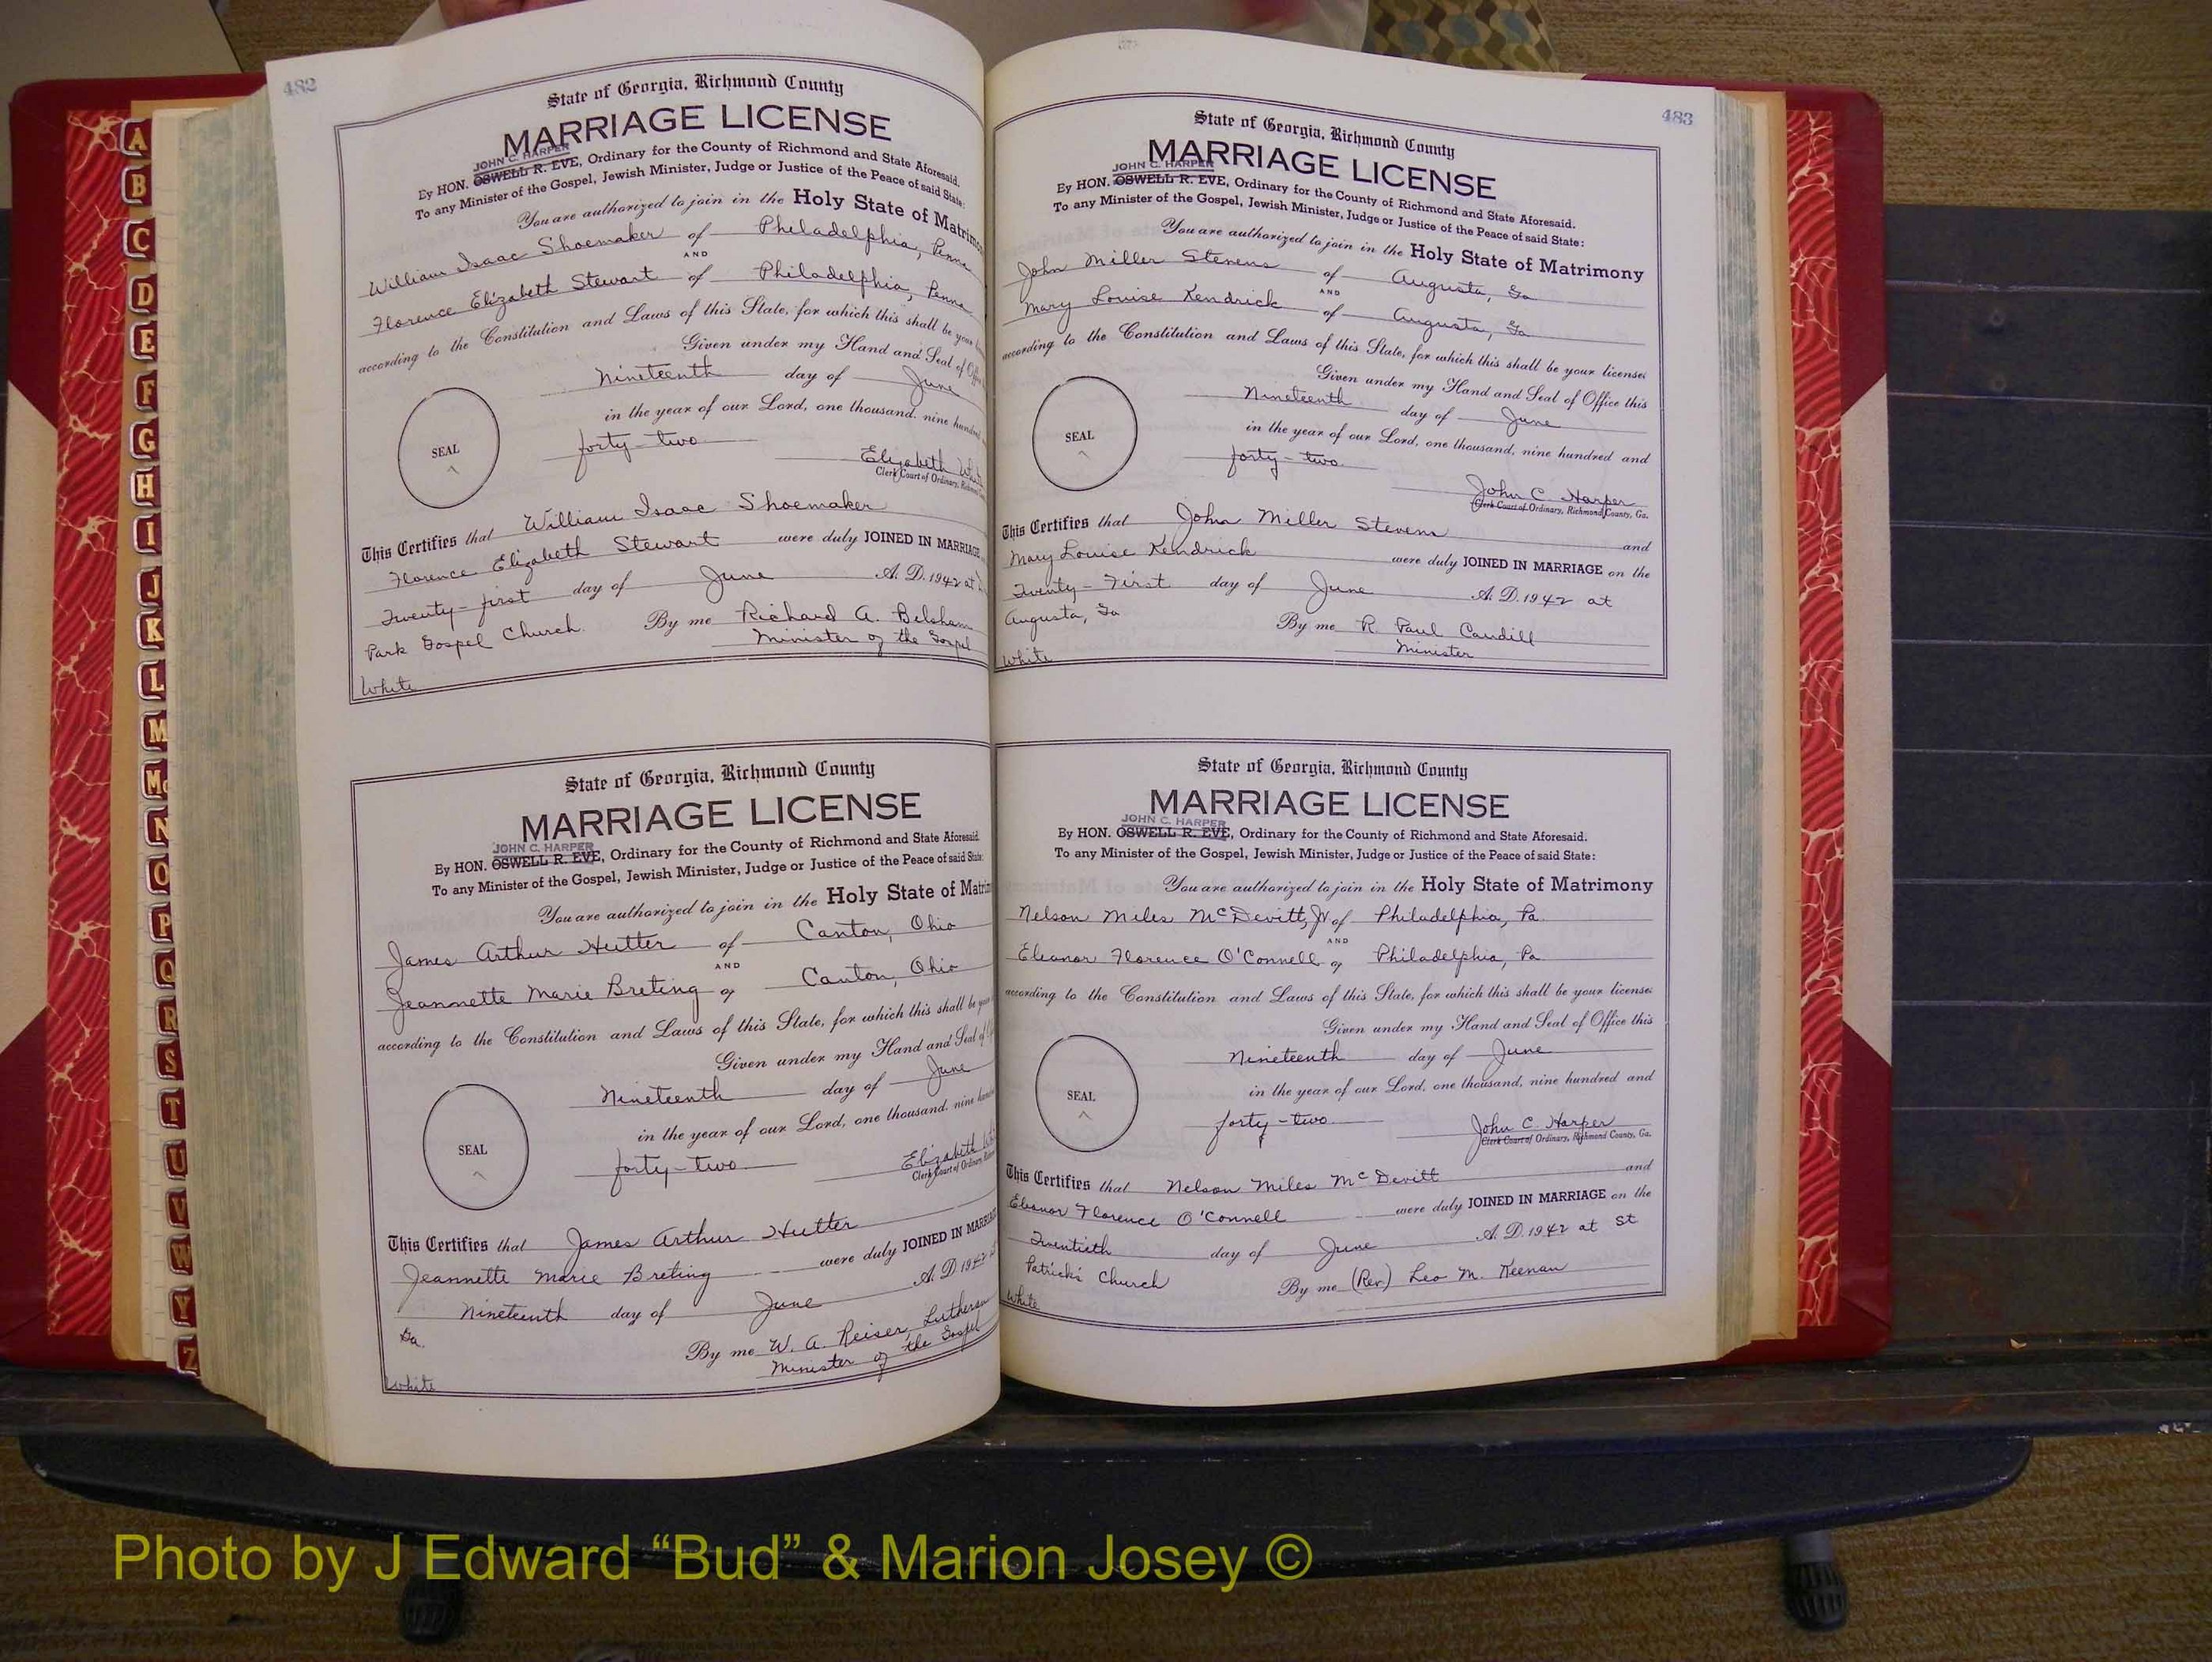 A
B
C
D
E
F
G
H
I
J
K
L
M
Mc
N
O
P
Q
R
S
T
U
V
W
Y
Z
482
State of Georgia, Richmond County
MARRIAGE LICENSE
JOHN C. HARPER
By HON. OSWELL R. EVE, Ordinary for the County of Richmond and State Aforesaid.
To any Minister of the Gospel, Jewish Minister, Judge or Justice of the Peace of said State:
You are authorized to join in the Holy State of Matrimo
William Isaac Shoemaker of Philadelphia, Penna
AND
Florence Elizabeth Stewart of Philadelphia, Penna
according to the Constitution and Laws of this State, for which this shall be your
Given under my Hand and Seal of
Nineteenth day of June
in the year of our Lord, one thousand, nine hundred
forty-two
SEAL
Elizabeth
Clerk Court of Ordinary,
This Certifies that William Isaac Shoemaker
Florence Elizabeth Stewart were duly JOINED IN MARRIAGE
Twenty-first day of June A. D. 1942 at
Park Gospel Church. By me Richard A. Belsham
Minister of the Gospel
White
State of Georgia, Richmond County
MARRIAGE LICENSE
JOHN C. HARPER
By HON. OSWELL R. EVE, Ordinary for the County of Richmond and State Aforesaid.
To any Minister of the Gospel, Jewish Minister, Judge or Justice of the Peace of said State:
You are authorized to join in the Holy State of Matrim
James Arthur Hutter of Canton, Ohio
AND
Jeannette Marie Breting of Canton, Ohio
according to the Constitution and Laws of this State, for which this shall be your
Given under my Hand and Seal of
Nineteenth day of June
in the year of our Lord, one thousand, nine
forty-two
SEAL
Elizabeth
Clerk Court of Ordinary,
This Certifies that James Arthur Hutter
Jeannette Marie Breting were duly JOINED IN MARRIAGE
Nineteenth day of June A. D. 1942
Ga. By me W. A. Reiser, Lutheran
Minister of the Gospel
White
483
State of Georgia, Richmond County
MARRIAGE LICENSE
JOHN C. HARPER
By HON. OSWELL R. EVE, Ordinary for the County of Richmond and State Aforesaid.
To any Minister of the Gospel, Jewish Minister, Judge or Justice of the Peace of said State:
You are authorized to join in the Holy State of Matrimony
John Miller Stevens of Augusta, Ga
AND
Mary Louise Kendrick of Augusta, Ga
according to the Constitution and Laws of this State, for which this shall be your license:
Given under my Hand and Seal of Office this
Nineteenth day of June
in the year of our Lord, one thousand, nine hundred and
forty-two.
SEAL
John C. Harper
Clerk Court of Ordinary, Richmond County, Ga.
This Certifies that John Miller Stevens and
Mary Louise Kendrick were duly JOINED IN MARRIAGE on the
Twenty-First day of June A. D. 1942 at
Augusta, Ga By me R. Paul Caudill
Minister
White
State of Georgia, Richmond County
MARRIAGE LICENSE
JOHN C. HARPER
By HON. OSWELL R. EVE, Ordinary for the County of Richmond and State Aforesaid.
To any Minister of the Gospel, Jewish Minister, Judge or Justice of the Peace of said State:
You are authorized to join in the Holy State of Matrimony
Nelson Miles McDevitt, Jr of Philadelphia, Pa.
AND
Eleanor Florence O'Connell of Philadelphia, Pa.
according to the Constitution and Laws of this State, for which this shall be your license:
Given under my Hand and Seal of Office this
Nineteenth day of June
in the year of our Lord, one thousand, nine hundred and
forty-two
SEAL
John C. Harper
Clerk Court of Ordinary, Richmond County, Ga.
This Certifies that Nelson Miles McDevitt and
Eleanor Florence O'Connell were duly JOINED IN MARRIAGE on the
Twentieth day of June A. D. 1942 at St
Patrick's Church By me (Rev.) Leo M. Keenan
White
Photo by J Edward “Bud” & Marion Josey ©